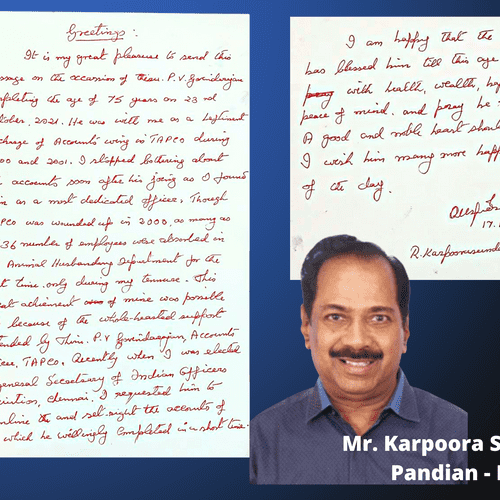 Greetings:
It is my great pleasure to send this
ssage on the occassion of Thiru. P.V. Govindarajan
mpleting the age of 75 years on 23 rd
tober, 2021. He was with me as a
charge of Accounts wing in TAPCO during
00 and 2001. I stopped bothering about
accounts soon after his joing as I found
as a most dedicated officer. Though
PCO was wounded up in 2000, as many as
36 number of employees were absorbed in
Animal Husbandry Department for the
st time only during my tenure. This
eat achiement of mine was possible
because of the whole-hearted support
tended by Thiru. P.V Govindarajan, Accounts
TAPCO. Recently when I was elected
general Secretary of Indian Officers
ciation, Chennai, I requested him to
the and set-right the accounts of
which he willingly completed in a short time.
I am happy that the
has blessed him till this age
with health, wealth,
peace of mind. and pray he
A good and noble heart
I wish him many more happ
of the day.
17.
R. Karpoorasunda
Mr. Karpoora S
Pandian - I